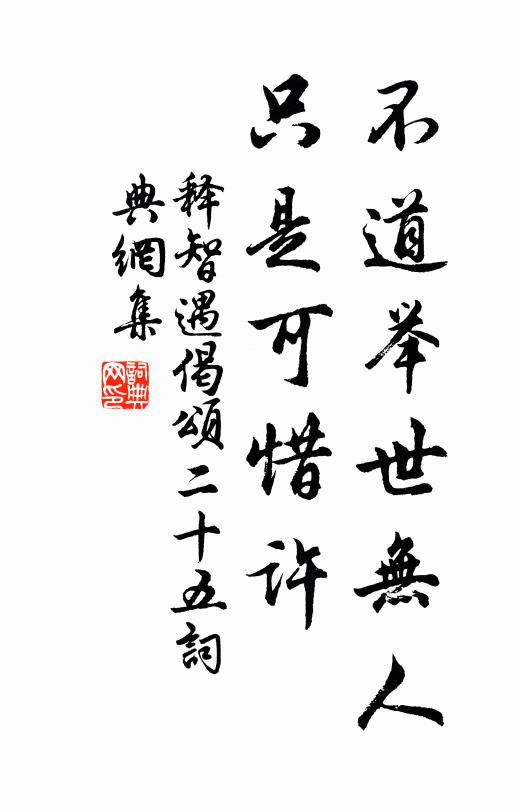 不道举世無人
只是可惜许
释智遇偈頌二十五詞
典網集
詞典
网印